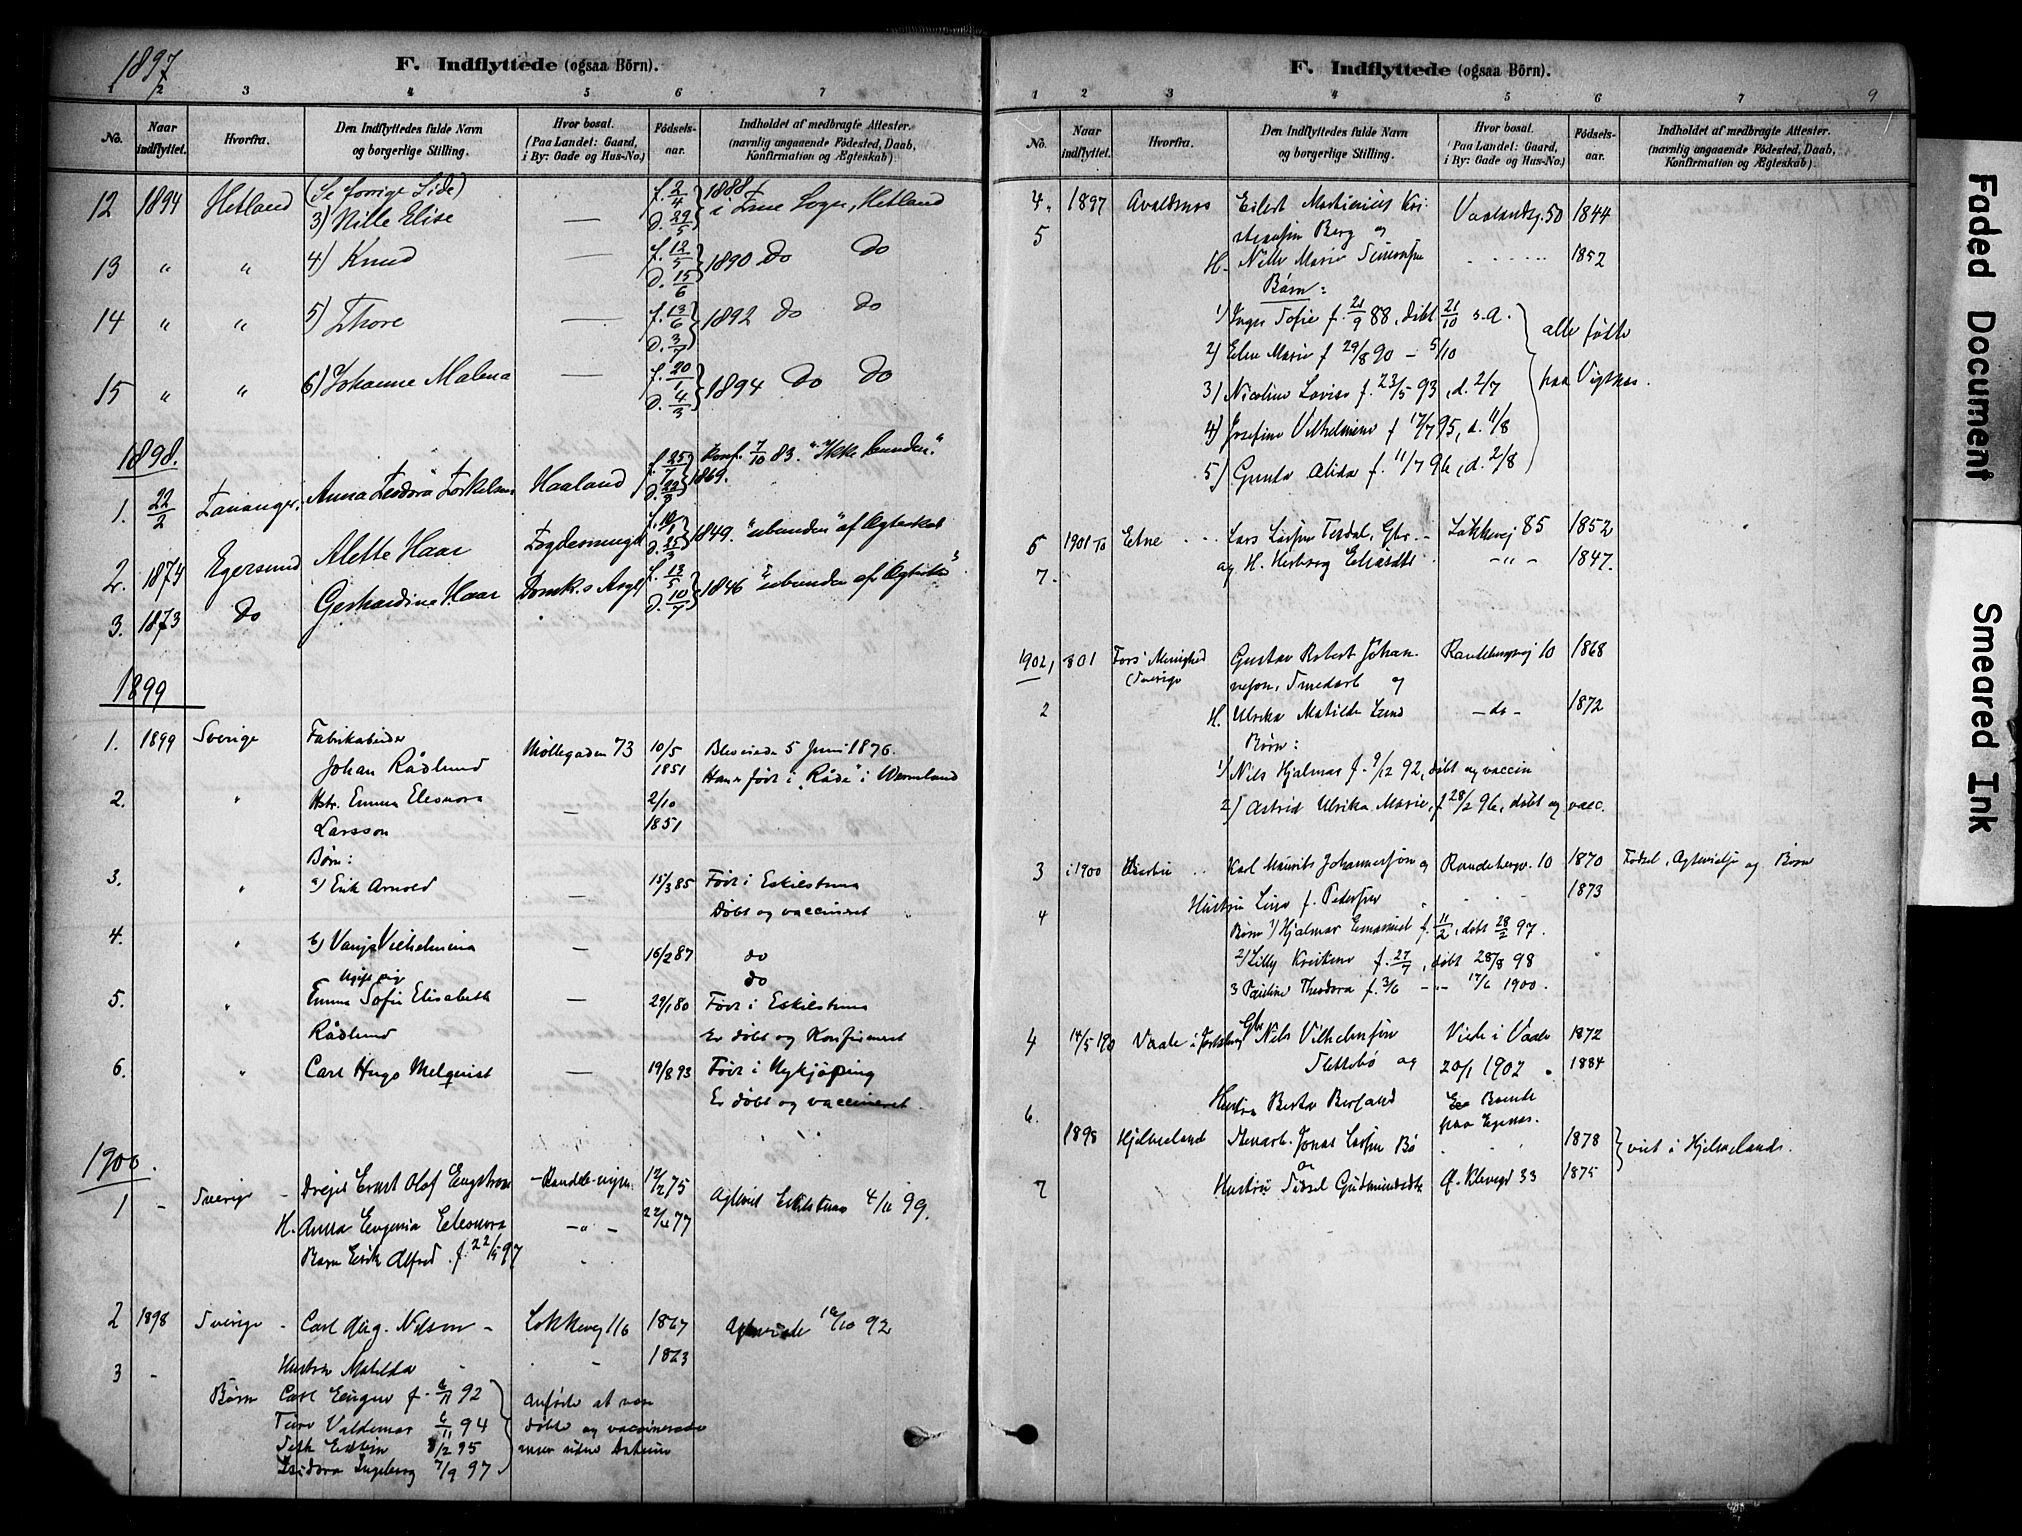 1897
F. Indflyttede (ogsaa Börn).
1 2 3 4 5 6 7
No.
Naar indflyttet.
Hvorfra.
Den Indflyttedes fulde Navn og borgerlige Stilling.
Hvor bosat. (Paa Landet: Gaard, i By: Gade og Hus-No.)
Födsels-aar.
Indholdet af medbragte Attester. (navnlig angaaende Födested, Daab, Konfirmation og Ægteskab).
12 1894 Hetland (Se forrige Side) f. 2/4 1888
3) Nille Elise — D. 29/5 Sogn, Hetland
13 " " 4) Knud — f. 12/5 D. 15/6 1890 do do
14 " " 5) Thore — f. 13/6 D. 3/7 1892 do do
15 " " 6) Johanne Malena — f. 20/1 D. 4/3 1894 do do
1898.
1. 22/2 Tananger. Anna Haaland f. 25/7 1869. Konf. 7/10 83. "Ikke bunden."
2. 1874 Egersund Alette Haar 1849. "ubunden" af Ægteskab
3. 1873 do Gerhardina Haar Domk.s f. 13/5 D. 10/7 1846 "ubunden af
1899
1. 1899 Sverige Fabrikarbeider
Johan Rådlund Møllegaden 73 10/5 1851 5 Juni 1876.
født i "Råda" i Wermland
2. " Hstr. Emma Eleonora
Larsson — 2/10 1851
Børn:
3. " a) Erik Arnold — 15/3 85 Født i Eskilstuna
Døbt og vaccineret
4. " b) Vanja Vilhelmina — 16/2 87 do
do
Ugift pige
5. " Emma Sofie Elisabeth — 29/1 80 Født i Eskilstuna
Rådlund Er døbt og Konfirmeret
6. " Carl Hugo Melquist — 19/8 93 Født i Nykjøping
Er døbt og vaccineret.
1900.
1 - Sverige - Drejer Ernst Olof Engstrøm 12/2 75 Eskilstuna 4/11 99.
H. Anna Eugenia Eleonora - " - 22/4 77
Barn Erik Alfred. f. 22/5 97
2 1898 Sverige - Carl Aug. Nilson - Løkkevej 116 1867 10/10 92
3 - Hustru Matilda - - 1863
Børn Carl Eugen f. 6/11 92 anføres at være
Ture Valdemar 6/11 94 døbte og vaccinerede
Seth Edvin 8/2 95 men uden
Isidora Ingeborg 7/9 97
F. Indflyttede (ogsaa Börn).
9
1 2 3 4 5 6 7
No.
Naar indflyttet.
Hvorfra.
Den Indflyttedes fulde Navn og borgerlige Stilling.
Hvor bosat. (Paa Landet: Gaard, i By: Gade og Hus-No.)
Födsels-aar.
Indholdet af medbragte Attester. (navnlig angaaende Födested, Daab, Konfirmation og Ægteskab).
4. 1897 Avaldsnes Eilert Martinius Kri- Vaalandsg. 50 1844
5 Berg og
H. Nille Marie 1852
Børn:
1) Inger Sofie f. 21/9 88, døbt 21/10 s.a.
2) Elen Marie f 29/8 90 - 5/10 alle fødte
3) Nicoline Lovise f. 23/5 93, d. 2/7 paa Vigsnes.
4) Josefine Vilhelmine f 17/7 95, d. 11/8
5) Gunda Alida f. 11/7 96, d. 2/8
6 1901 Etne Lars Larsen Løkkevej 85 1852
7. og H. Herborg - " - 1847.
1902, 1 Fors' Menighed Gustav Robert Johan- Randebergvej 10 1868
(Sverige nesson, Smedarb og
2 H. Ulrika Matilde Lund - do - 1872
Børn:
1) Nils Hjalmar f. 9/12 92, døbt og vaccin
2) Astrid Ulrika Marie, f 28/2 96, døbt og vacc.
3 i 1900 Karl Maurits Johannesson og Randebergv. 10 1870 Fødsel, og Børn
4 Hustru Lina f. Pedersen 1873
Børn 1) Hjalmar Emanuel f. 11/2, døbt 28/2 97.
2) Lilly f. 27/7, døbt 28/8 98
3 Pauline Theodora f. 3/6 - " - 17/6 1900.
4 14/5 190 Vaale i Jarlsberg Gbr Nils Vilhelmsen Viede i Vaale 1872
Slettebø og 20/1 1902 1884
6. Hustru Berta Er Boende
paa Egenæs.
1898 Hjelmeland Stenarb. Jonas Larsen Bø 1878 viet i Hjelmeland.
7 og Hustru Sidsel Gudmundsdtr 33 1875
Faded Document
Smeared Ink